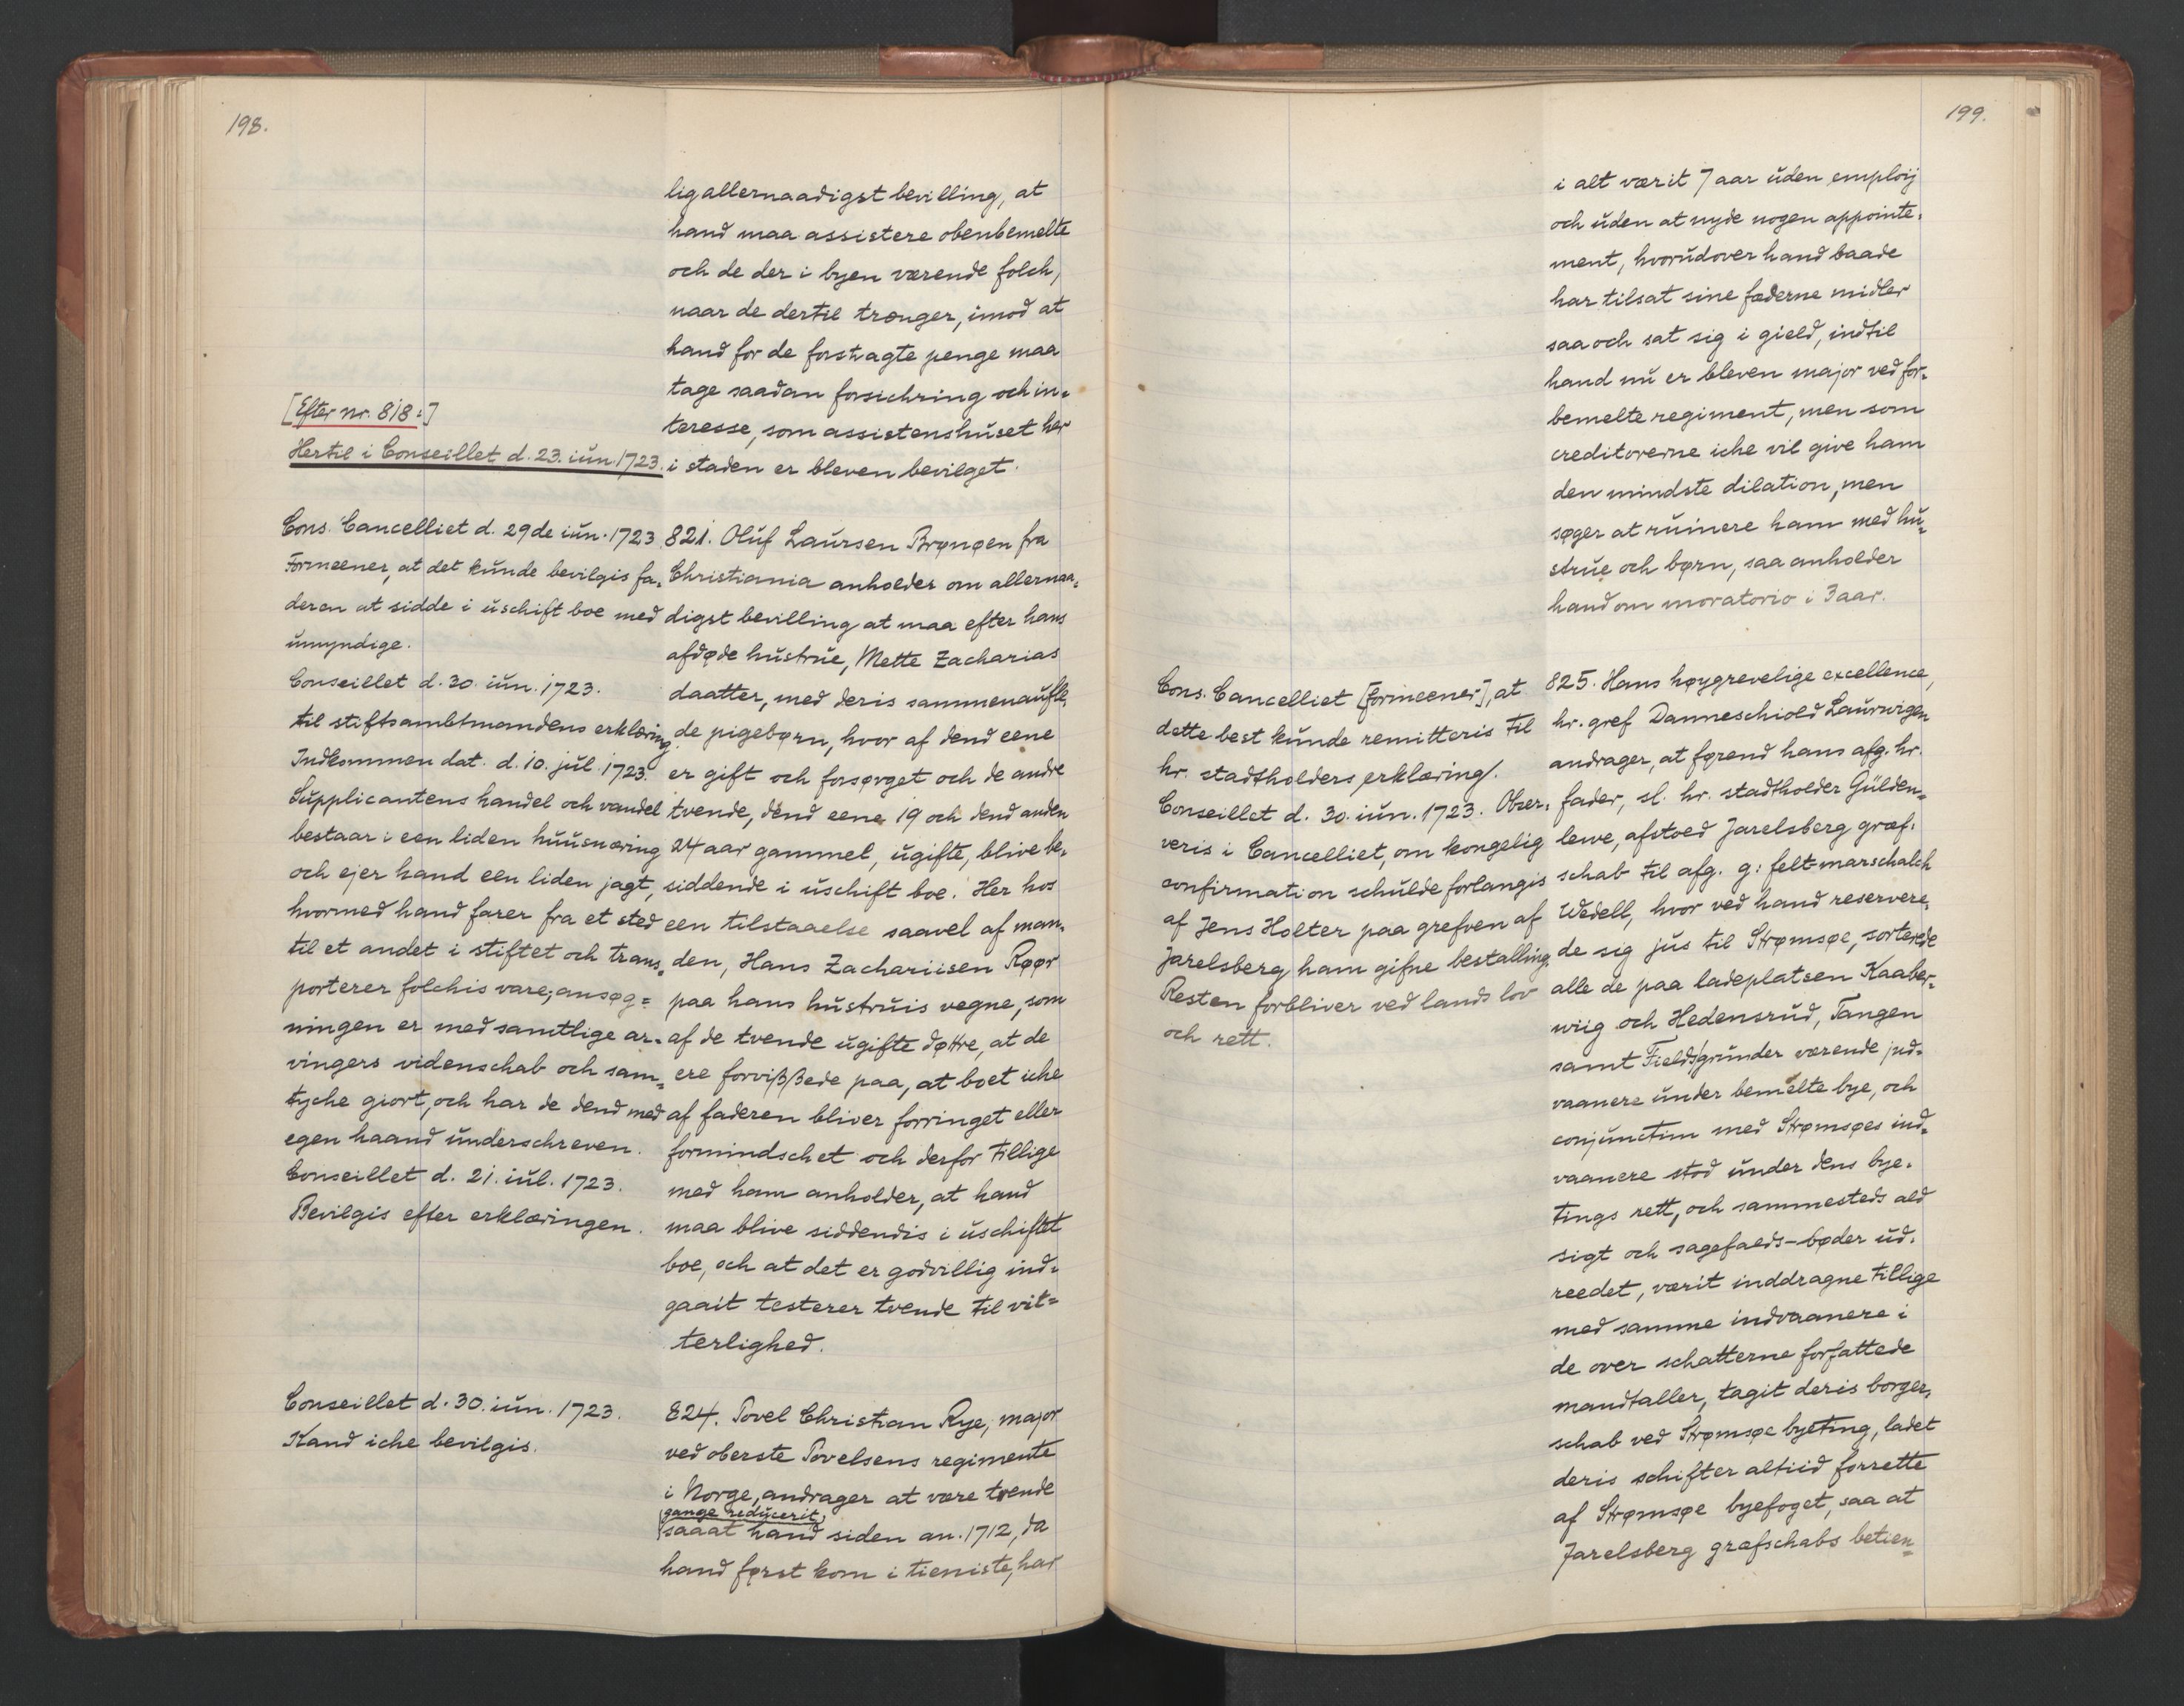 198.
[Efter nr. 818:]
Hertil i Conseillet d. 23. iún. 1723.
Cons. Cancelliet d. 29de iún. 1723
Formeener, at det kúnde bevilgis fa-
deren at sidde i úschift boe med
úmyndige.
Conseillet d. 30. iún. 1723.
til stiftsambtmandens erklæring
Indkommen dat. d. 10. júl. 1723.
Súpplicantens handel och vandel
bestaar i een liden húúsnæring
och ejer hand een liden jagt,
hvormed hand farer fra et sted
til et andet i stiftet och trans-
porterer folchis vare; ansøg=
ningen er med samtlige ar-
vingers videnschab och sam-
tyche giort, och har de dend med
egen haand únderschreven.
Conseillet d. 21. iúl. 1723.
Bevilgis efter erklæringen.
Conseillet d. 30. iún. 1723.
Kand iche bevilgis.
lig allernaadigst bevilling, at
hand maa assistere obenbemelte
och de der i byen værende folch,
naar de dertil trænger, imod at
hand for de forstragte penge maa
tage saadan forsichring och in-
teresse, som assistenshúset her
i staden er bleven bevilget.
821. Olúf Laúrsen Brønøen fra
Christiania anholder om allernaa-
digst bevilling at maa efter hans
afdøde hústrúe, Mette Zacharias
daatter, med deris sammenaúfle-
de pigebørn, hvor af dend eene
er gift och forsørget och de andre
tvende, dend eene 19 och dend anden
24 aar gammel, úgifte, blive be-
siddende i úschift boe. Her hos
een tilstaaelse saavel af man-
den, Hans Zachariisen Røør
paa hans hústrúis vegne, som
af de tvende úgifte døttre, at de
ere forvißßede paa, at boet iche
af faderen bliver forringet eller
formindschet och derfor tillige
med ham anholder, at hand
maa blive siddendis i úschiftet
boe, och at det er godvillig ind-
gaait testerer tvende til vit=
terlighed.
824. Povel Christian Rye, major
ved oberste Povelsens regimente
i Norge, andrager at være tvende
gange redúcerit,
saaat hand siden an. 1712, da
hand først kom i tieniste, har
199.
i alt værit 7 aar úden employ
och úden at nyde nogen appointe-
ment, hvorúdover hand baade
har tilsat sine fæderne midler
saa och sat sig i gield, indtil
hand nú er bleven major ved for-
bemelte regiment, men som
creditorerne iche vil give ham
den mindste dilation, men
søger at rúinere ham med hú-
strúe och børn, saa anholder
hand om moratorio i 3 aar.
Cons. Cancelliet [formeener], at
dette best kúnde remitteris til
hr. stadtholders erklæring.
Conseillet d. 30. iún. 1723. Obser-
veris i Cancelliet, om kongelig
confirmation schúlde forlangis
af Jens Holter paa grefven af
Jarelsberg ham gifne bestalling.
Resten forbliver ved lands lov
och rett.
825. Hans høygrevelige excellence,
hr. gref Danneschiold Laúrwigen
andrager, at førend hans afg. hr.
fader, sl. hr. stadtholder Gúlden-
lewe, afstoed Jarelsberg græf-
schab til afg. g: felt-marschalch
Wedell, hvor ved hand reservere-
de sig jús til Strømsøe, sorterede
alle de paa ladeplatsen Kaaber-
wiig och Hedensrúd, Tangen
samt Fieldsgrúnder værende ind-
vaanere únder bemelte bye, och
conjúnctim med Strømsøes ind-
vaanere stod únder dens bye-
tings rett, och sammesteds ald
sigt och sagefalds-bøder úd-
reedet, værit inddragne tillige
med samme indvaanere i
de over schatterne forfattede
mandtaller, tagit deris borger-
schab ved Strømsøe byeting, ladet
deris schifter altiid forrette
af Strømsøe byefoget, saa at
Jarelsberg græfschabs betien=